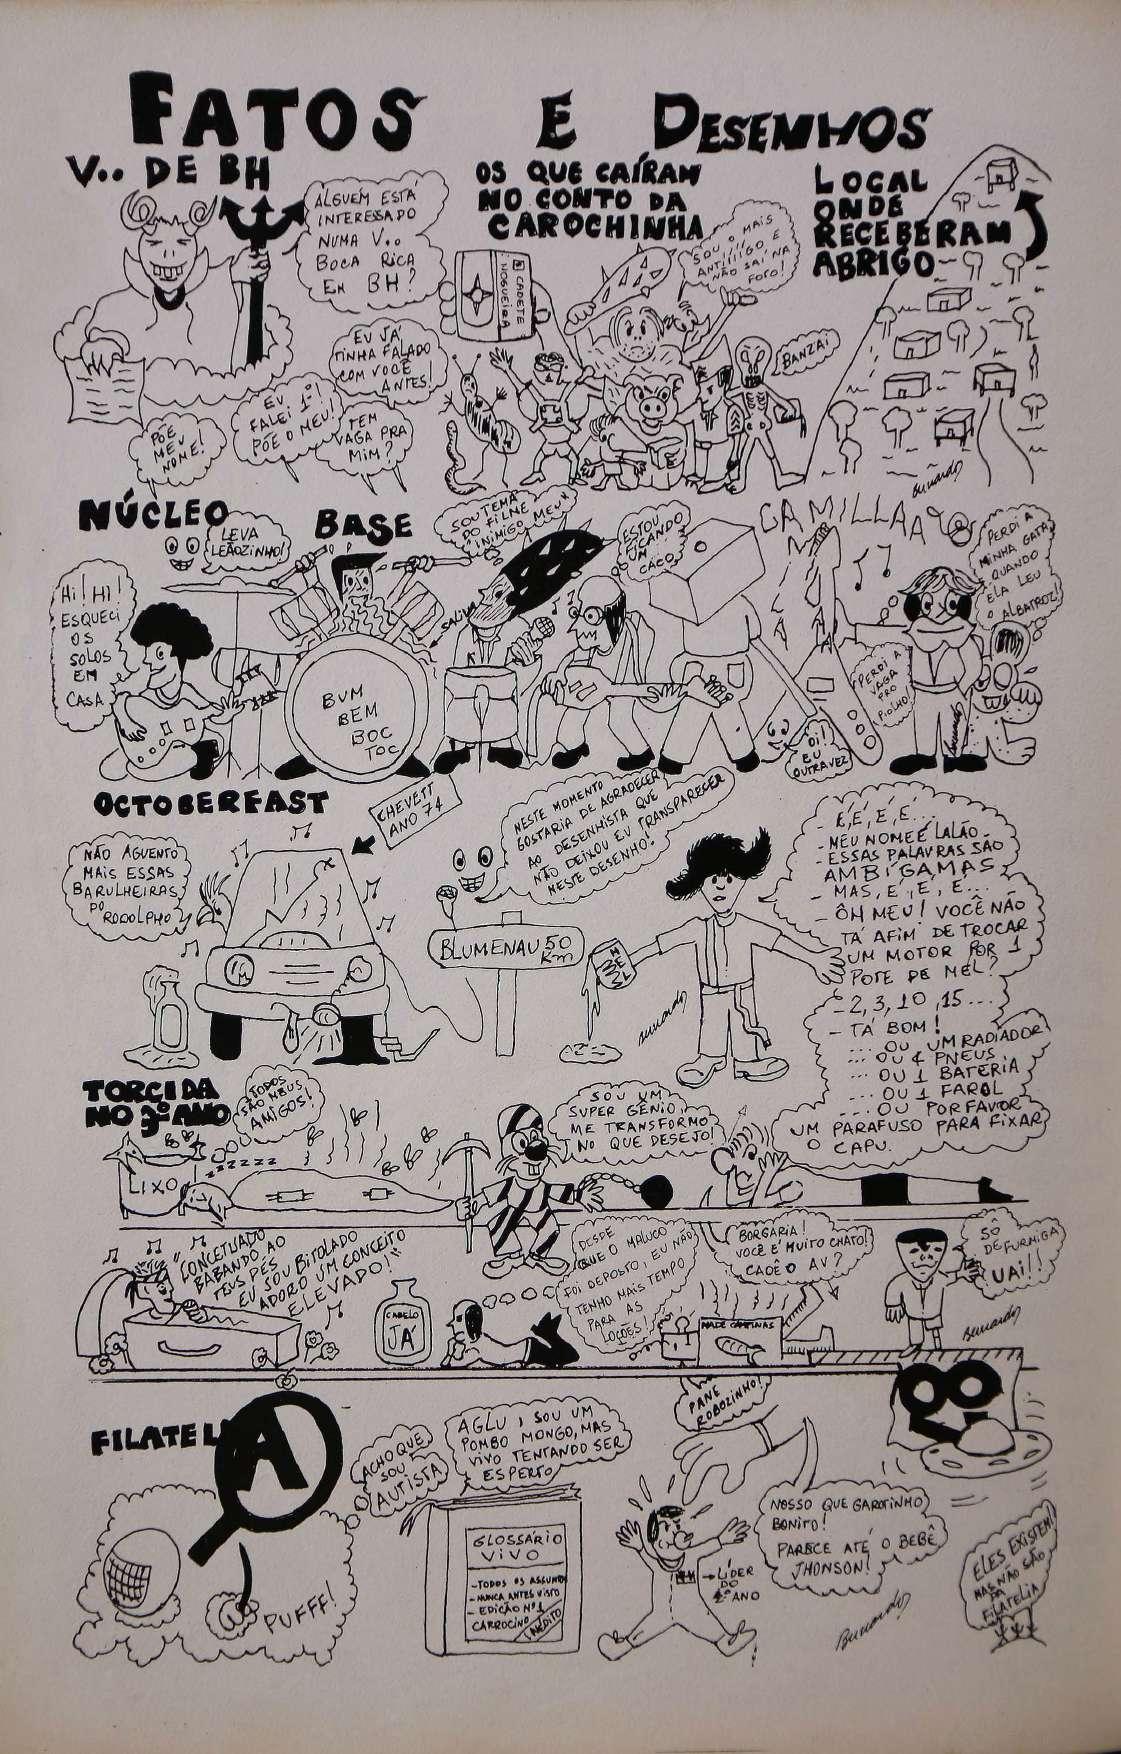 FATOS E DESENHOS
V.. DE BH
ALGUÉM ESTÁ
INTERESSADO
NUMA V..
BOCA RICA
EM BH?
EU JÁ
TINHA FALADO
COM VOCÊ
ANTES!
EU
FALEI 1º!
PÕE O MEU!
TEM
VAGA PRA
MIM?
PÕE
MEU
NOME!
OS QUE CAÍRAM
NO CONTO DA
CAROCHINHA
SOU O MAIS
ANTIIIIGO E
NÃO SAÍ NA
FOTO!
CADETE
NOGUEIRA
BANZAI
LOCAL
ONDE
RECEBERAM
ABRIGO
Bernardo
NÚCLEO BASE
LEVA
LEÃOZINHO!
HI! HI!
ESQUECI
OS
SOLOS
EM
CASA
SALIVA
BUM
BEM
BOC
TOC
SOU TEMA
DO FILME
INIMIGO MEU
ESTOU
FICANDO
UM
CACO
CAMILLAA
PERDI A
MINHA GATA
QUANDO
ELA LEU
O ALBATROZ!
PERDI A
VAGA
PRO
PIOLHO!
OI!
EU
OUTRA VEZ
Bernardo
OCTOBERFAST
CHEVETT
ANO 74
NÃO AGUENTO
MAIS ESSAS
BARULHEIRAS
DO
RODOLPHO
NESTE MOMENTO
GOSTARIA DE AGRADECER
AO DESENHISTA QUE
NÃO DEIXOU EU TRANSPARECER
NESTE DESENHO!
BLUMENAU 50
Km
MEL
Bernardo
- É, É, É, É...
- MEU NOME É LALÃO
- ESSAS PALAVRAS SÃO
AMBIGAMAS
- MAS, E, E, E...
- ÔH MEU! VOCÊ NÃO
TÁ AFIM DE TROCAR
UM MOTOR POR 1
POTE DE MEL?
- 2, 3, 10, 15...
- TÁ BOM!
... OU UM RADIADOR
... OU 4 PNEUS
... OU 1 BATERIA
... OU 1 FAROL
... OU POR FAVOR
UM PARAFUSO PARA FIXAR
O CAPU.
TORCIDA
NO 3º ANO
TODOS
SÃO MEUS
AMIGOS!
ZZZZZZZ
LIXO
SOU UM
SUPER GÊNIO,
ME TRANSFORMO
NO QUE DESEJO!
"CONCEITUADO
BABANDO AO
TEUS PÉS
EU SOU BITOLADO
ADORO UM CONCEITO
ELEVADO!"
CABELO
JÁ
DESDE
QUE O MALUCO
FOI DEPOSTO, EU NÃO
TENHO MAIS TEMPO
PARA
AS
LOÇÕES!
BORGARIA!
VOCÊ É MUITO CHATO!
CADÊ O AV?
MADE CAMPINAS
PANE
ROBOZINHO!
SÓ
DE FURMIGA
UAI!!
Bernardo
FILATELIA
PUFFF!
ACHO QUE
SOU
AUTISTA
AGLU, SOU UM
POMBO MONGO, MAS
VIVO TENTANDO SER
ESPERTO
GLOSSÁRIO
VIVO
- TODOS OS ASSUNTOS
- NUNCA ANTES VISTO
- EDIÇÃO Nº 1
CARROCINO
INÉDITO
→ LÍDER
DO
4º ANO
NOSSO QUE GAROTINHO
BONITO!
PARECE ATÉ O BEBÊ
JHONSON!
Bernardo
ELES EXISTEM!
MAS NÃO SÃO
DA
FILATELIA